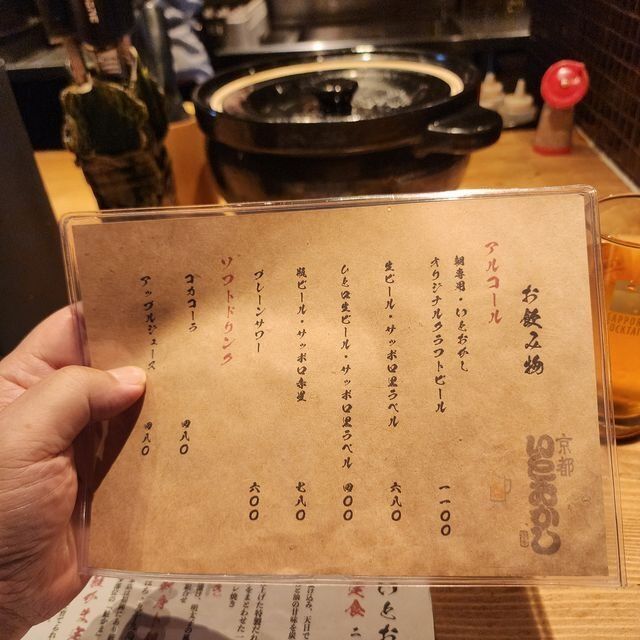 お飲み物
アルコール
鯛専用・いとおかし
オリジナルクラフトビール 一一〇〇
生ビール・サッポロ黒ラベル 六八〇
ひと口生ビール・サッポロ黒ラベル 四〇〇
瓶ビール・サッポロ赤星 七八〇
プレーンサワー 六〇〇
ソフトドリンク
コカコーラ 四八〇
アップルジュース 四八〇
京都
いとおかし